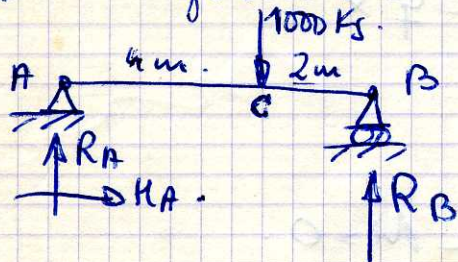 1000 Kg.
A 4m. 2m B
C
RA
HA.
RB